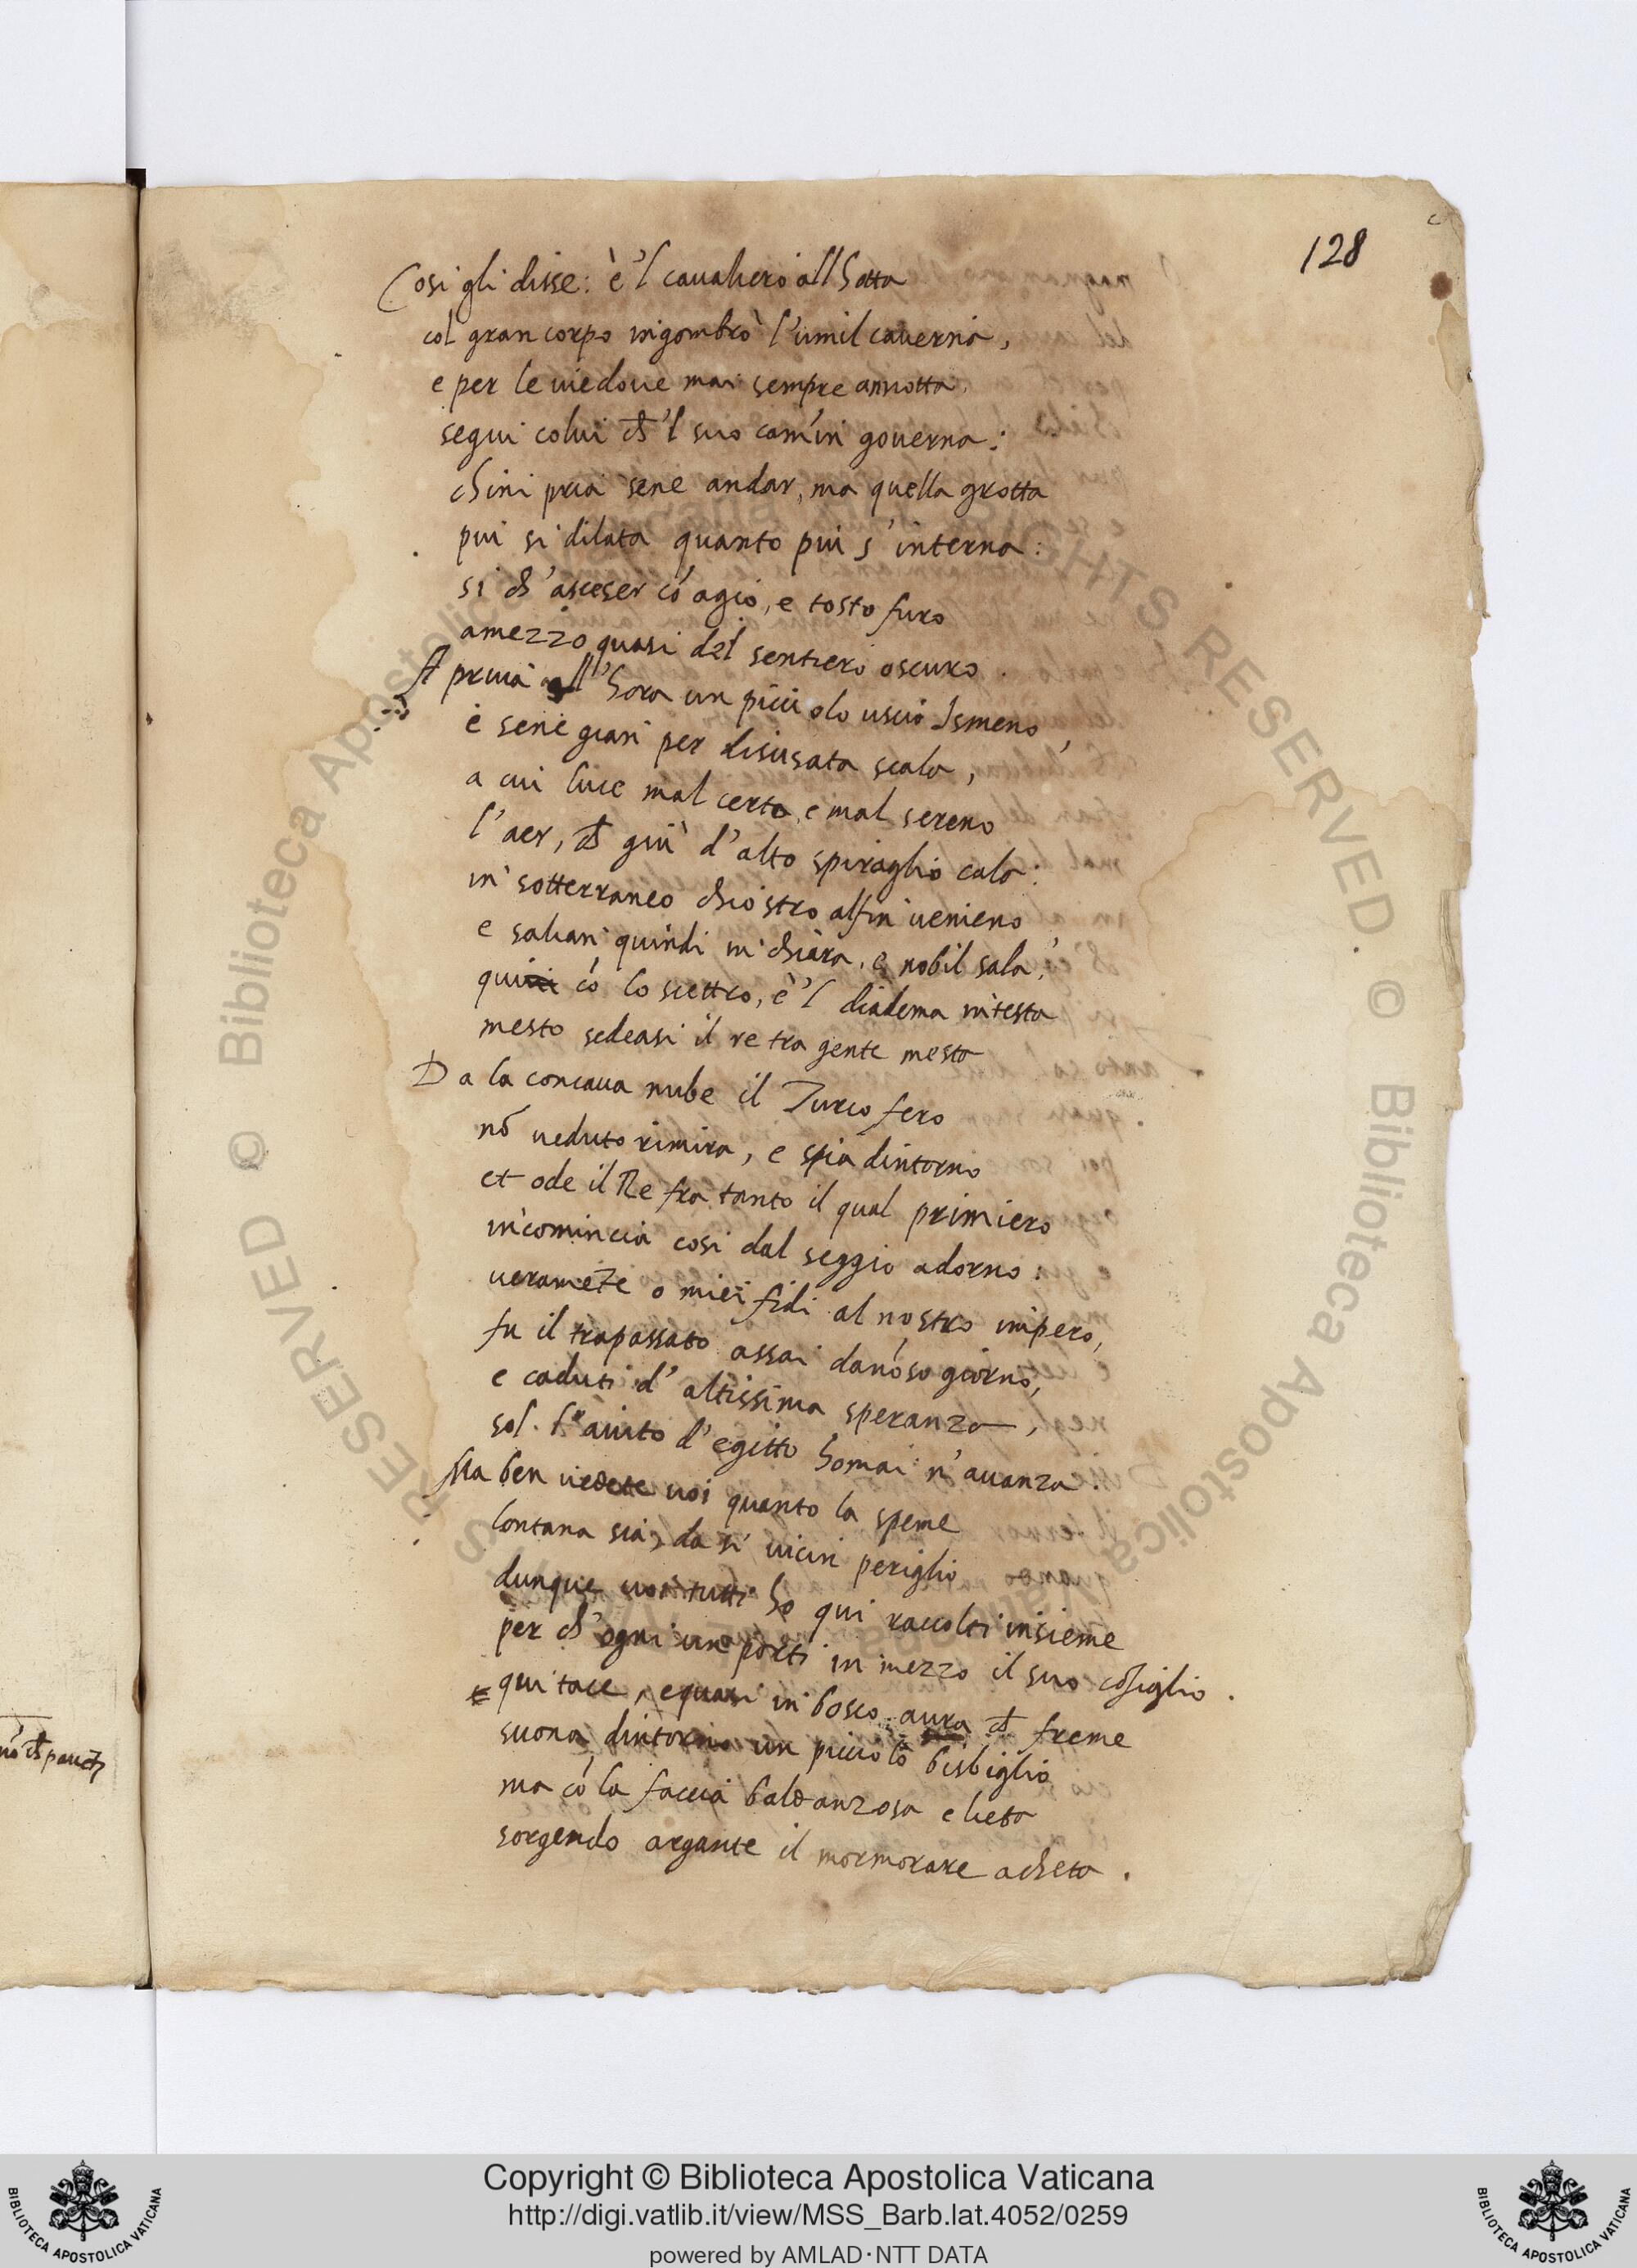 128
Cosi gli disse: è 'l caualiero all hotta
col gran corpo ingombrò l'umil cauerna,
e per le uie doue mai sempre annotta
segui colui ch 'l suo camin gouerna:
chini pria sene andar, ma quella grotta
piu si dilata quanto piu s'interna:
si ch' asceser có agio, e tosto furo
amezzo quasi del sentiero oscuro.
Apriua all'hora un picciolo uscio Ismeno,
e sene gian per disusata scala,
a cui luce mal certo, e mal sereno
l'aer, ch giù d'alto spiraglio cala:
in sotterraneo chiostro alfin uenieno
e salian quindi in chiara, e nobil sala,
qui có lo scettro, è 'l diadema in testa
mesto sedeasi il re tra gente mesta
Da la concaua nube il Turco fero
nõ ueduto rimira, e spia dintorno
et ode il Re fra tanto il qual primiero
incomincia cosi dal seggio adorno:
ueramẽte o miei fidi al nostro impero,
fu il trapassato assai danóso giorno,
e caduti d'altissima speranza,
sol l'aiuto d'egitto homai n'auanza.
Ma ben uedete uoi quanto la speme
lontana sia, da si uicin periglio
dunque uoi tutti ho qui raccolti insieme
per ch' ogni un porti in mezzo il suo cõsiglio.
qui tace, e quasi in bosco aura ch freme
suona dintorno un picciolo bisbiglio
ma có la faccia baldanzosa e lieta
sorgendo argante il mormorare acheta.
Copyright © Biblioteca Apostolica Vaticana
http://digi.vatlib.it/view/MSS_Barb.lat.4052/0259
powered by AMLAD·NTT DATA
BIBLIOTECA APOSTOLICA VATICANA
BIBLIOTECA APOSTOLICA VATICANA